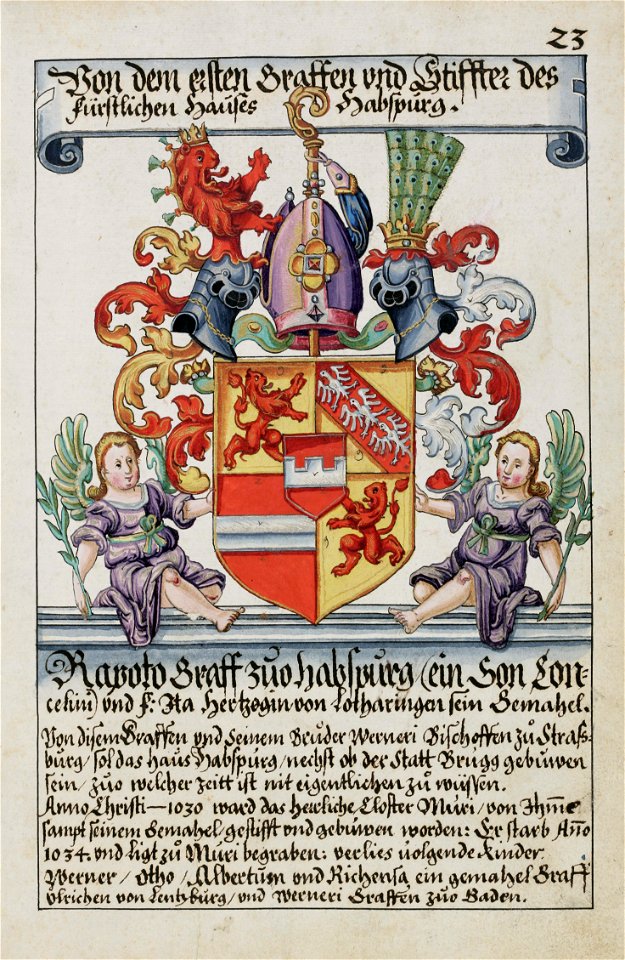 23
Von dem ersten Graffen vnd Stiffter des
Fürstlichen Hauses Habspurg.
Rapoto Graff zuo Habspurg (ein Son Lon-
celini) vnd F: Ita Hertzogin von Lotharingen sein Gemahel.
Von disem Graffen vnd Seinem Bruder Werneri Bischoffen zu Straß-
burg / sol das Haus Habspurg / nechst ob der Statt Brugg gebuwen
sein / zuo welcher Zeitt ist nit eigentlichen zů wüssen.
Anno Christi — 1030 ward das herliche Closter Muri / von Ihme
sampt seinem Gemahel gestifft vnd gebuwen worden: Er starb Año
1034. vnd ligt zů Muri begraben: verlies volgende Kinder.
Werner / Otho / Albertum vnd Richensa ein gemahel Graff
Vlrichen von Lentzburg / vnd Werneri Graffen zuo Baden.